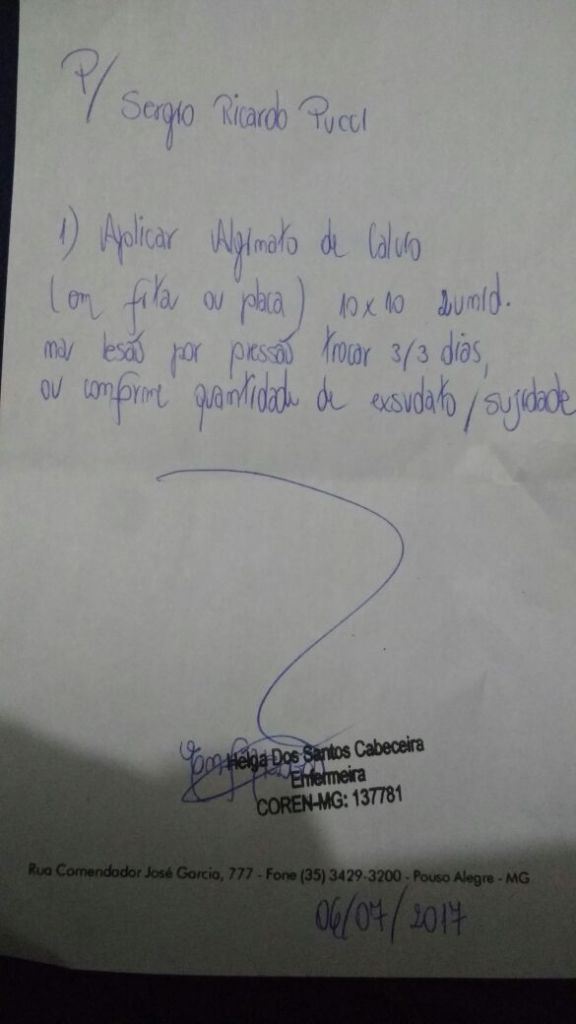 P/ Sergio Ricardo Pucci
1) Aplicar Alginato de Calcio
(em fita ou placa) 10x10 2 unid.
na lesão por pressão trocar 3/3 dias,
ou conforme quantidade de exsudato/sujidade
Helga Dos Santos Cabeceira
Enfermeira
COREN-MG: 137781
Rua Comendador José Garcia, 777 - Fone (35) 3429-3200 - Pouso Alegre - MG
06/07/2017